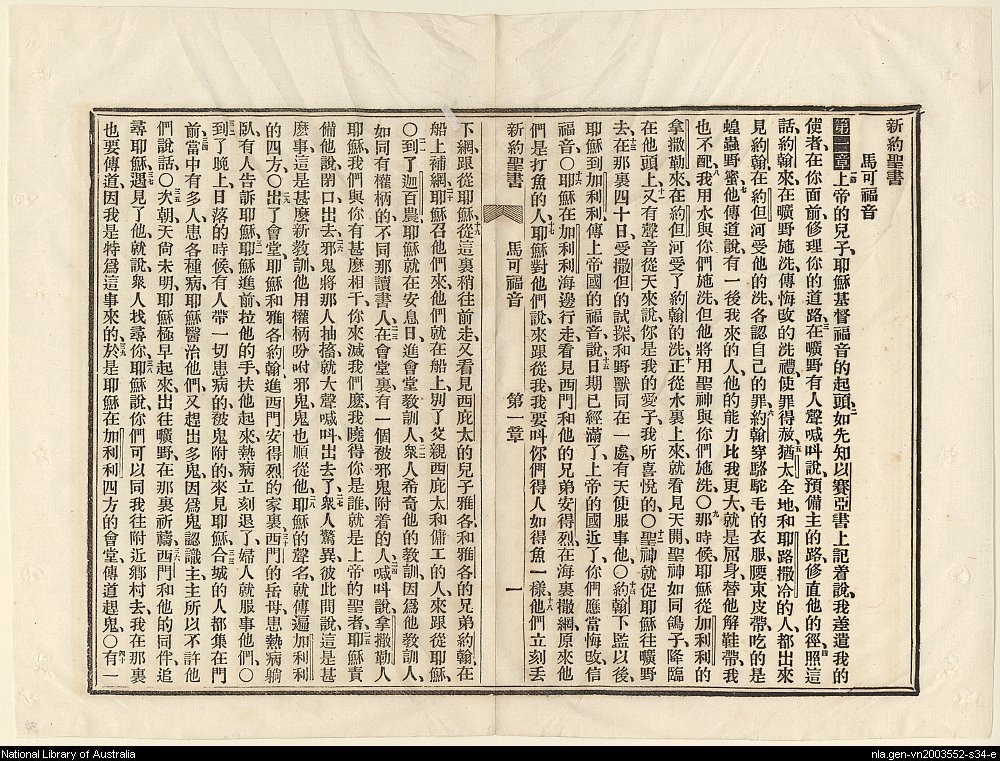 新約聖書
馬可福音
第一章上帝的兒子耶穌基督福音的起頭、二如先知以賽亞書上記着說、我差遣我的
使者在你面前修理你的道路、三在曠野有人聲喊呌說、預備主的路、修直他的徑、四照這
話、約翰來在曠野施洗、傳悔改的洗禮、使罪得赦、五猶太全地和耶路撒冷的人都出來
見約翰、在約但河受他的洗、各認自己的罪、六約翰穿駱駝毛的衣服、腰束皮帶、吃的是
蝗蟲野蜜、七他傳道說、有一後我來的人、他的能力比我更大、就是屈身替他解鞋帶、我
也不配、八我用水與你們施洗、但他將用聖神與你們施洗、〇九那時候、耶穌從加利利的
拿撒勒來、在約但河受了約翰的洗、十正從水裏上來、就看見天開、聖神如同鴿子降臨
在他頭上、十一又有聲音從天來說、你是我的愛子、我所喜悅的、〇十二聖神就促耶穌往曠野
去、十三在那裏四十日、受撒但的試探、和野獸同在一處、有天使服事他、〇十四約翰下監以後、
耶穌到加利利、傳上帝國的福音、十五說、日期已經滿了、上帝的國近了、你們應當悔改信
福音、〇十六耶穌在加利利海邊行走、看見西門和他的兄弟安得烈、在海裏撒網、原來他
們是打魚的人、十七耶穌對他們說、來跟從我、我要呌你們得人如得魚一樣、十八他們立刻丟
新約聖書　馬可福音　第一章　一
下網、跟從耶穌、十九從這裏稍往前走、又看見西庇太的兒子雅各、和雅各的兄弟約翰、在
船上補網、二十耶穌召他們來、他們就在船上別了父親西庇太和傭工的人、來跟從耶穌、
〇二一到了迦百農、耶穌就在安息日進會堂教訓人、二二衆人希奇他的教訓、因爲他教訓人、
如同有權柄的、不同那讀書人、二三在會堂裏有一個被邪鬼附着的人、喊呌說、二四拿撒勒人
耶穌、我們與你有甚麽相干、你來滅我們麽、我曉得你是誰、就是上帝的聖者、二五耶穌責
備他說、閉口出去、二六邪鬼將那人抽搐、就大聲喊呌出去了、二七衆人驚異、彼此問說、這是甚
麽事、這是甚麽新教訓、他用權柄吩咐邪鬼、鬼也順從他、二八耶穌的聲名、就傳遍加利利
的四方、〇二九出了會堂、耶穌和雅各約翰、進西門安得烈的家裏、三十西門的岳母患熱病躺
臥、有人告訴耶穌、三一耶穌進前拉他的手、扶他起來、熱病立刻退了、婦人就服事他們、〇
三二到了晚上日落的時候、有人帶一切患病的、被鬼附的、來見耶穌、三三合城的人都集在門
前、三四當中有多人患各種病、耶穌醫治他們、又趕出多鬼、因爲鬼認識主、主所以不許他
們說話、〇三五次朝天尙未明、耶穌極早起來、出往曠野、在那裏祈禱、三六西門和他的同伴追
尋耶穌、三七遇見了他、就說、衆人找尋你、三八耶穌說、你們可以同我往附近鄉村去、我在那裏
也要傳道、因我是特爲這事來的、三九於是耶穌在加利利四方的會堂、傳道趕鬼、〇四十有一
National Library of Australia
nla.gen-vn2003552-s34-e